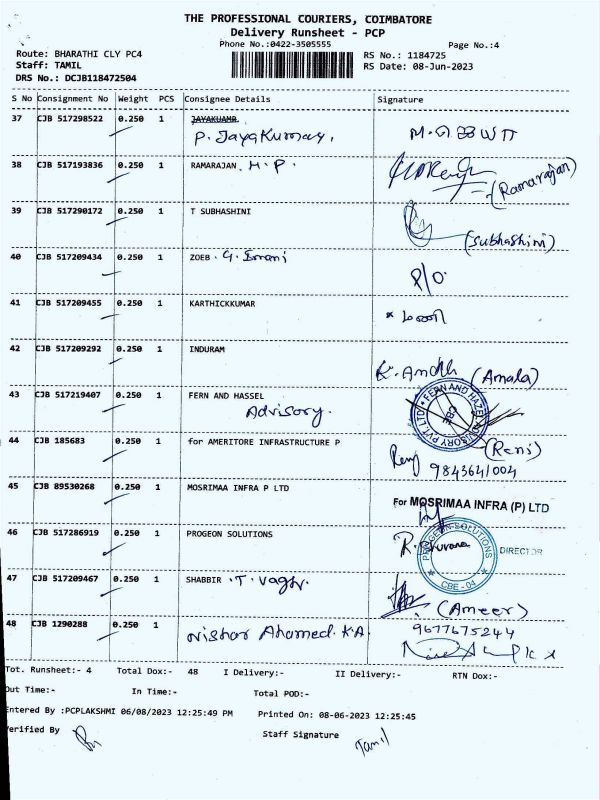 THE PROFESSIONAL COURIERS, COIMBATORE
Delivery Runsheet - PCP
Phone No.:0422-3505555 Page No.:4
Route: BHARATHI CLY PC4 RS No.: 1184725
Staff: TAMIL RS Date: 08-Jun-2023
DRS No.: DCJB118472504
S No Consignment No Weight PCS Consignee Details Signature
37 CJB 517298522 0.250 1 JAYAKUAMR
P. Jayakumar.
38 CJB 517193836 0.250 1 RAMARAJAN. M.P.
(Ramarajan)
39 CJB 517290172 0.250 1 T SUBHASHINI
(Subhashini)
40 CJB 517209434 0.250 1 ZOEB . G. Imani
P/O
41 CJB 517209455 0.250 1 KARTHICKKUMAR
42 CJB 517209292 0.250 1 INDURAM
K. Andh (Amala)
43 CJB 517219407 0.250 1 FERN AND HASSEL
Advisory. FERN AND HAZEL ADVISORY PVT LTD CBE
44 CJB 185683 0.250 1 for AMERITORE INFRASTRUCTURE P (Reni)
9843641004
45 CJB 89530268 0.250 1 MOSRIMAA INFRA P LTD
For MOSRIMAA INFRA (P) LTD
46 CJB 517286919 0.250 1 PROGEON SOLUTIONS
PROGEON SOLUTIONS CBE-04 DIRECTOR
47 CJB 517209467 0.250 1 SHABBIR .T. Vagh.
(Ameer)
48 CJB 1290288 0.250 1 Nishar Ahamed.K.A. 9677675244
Tot. Runsheet:- 4 Total Dox:- 48 I Delivery:- II Delivery:- RTN Dox:-
Out Time:- In Time:- Total POD:-
Entered By :PCPLAKSHMI 06/08/2023 12:25:49 PM Printed On: 08-06-2023 12:25:45
Verified By Staff Signature Tamil